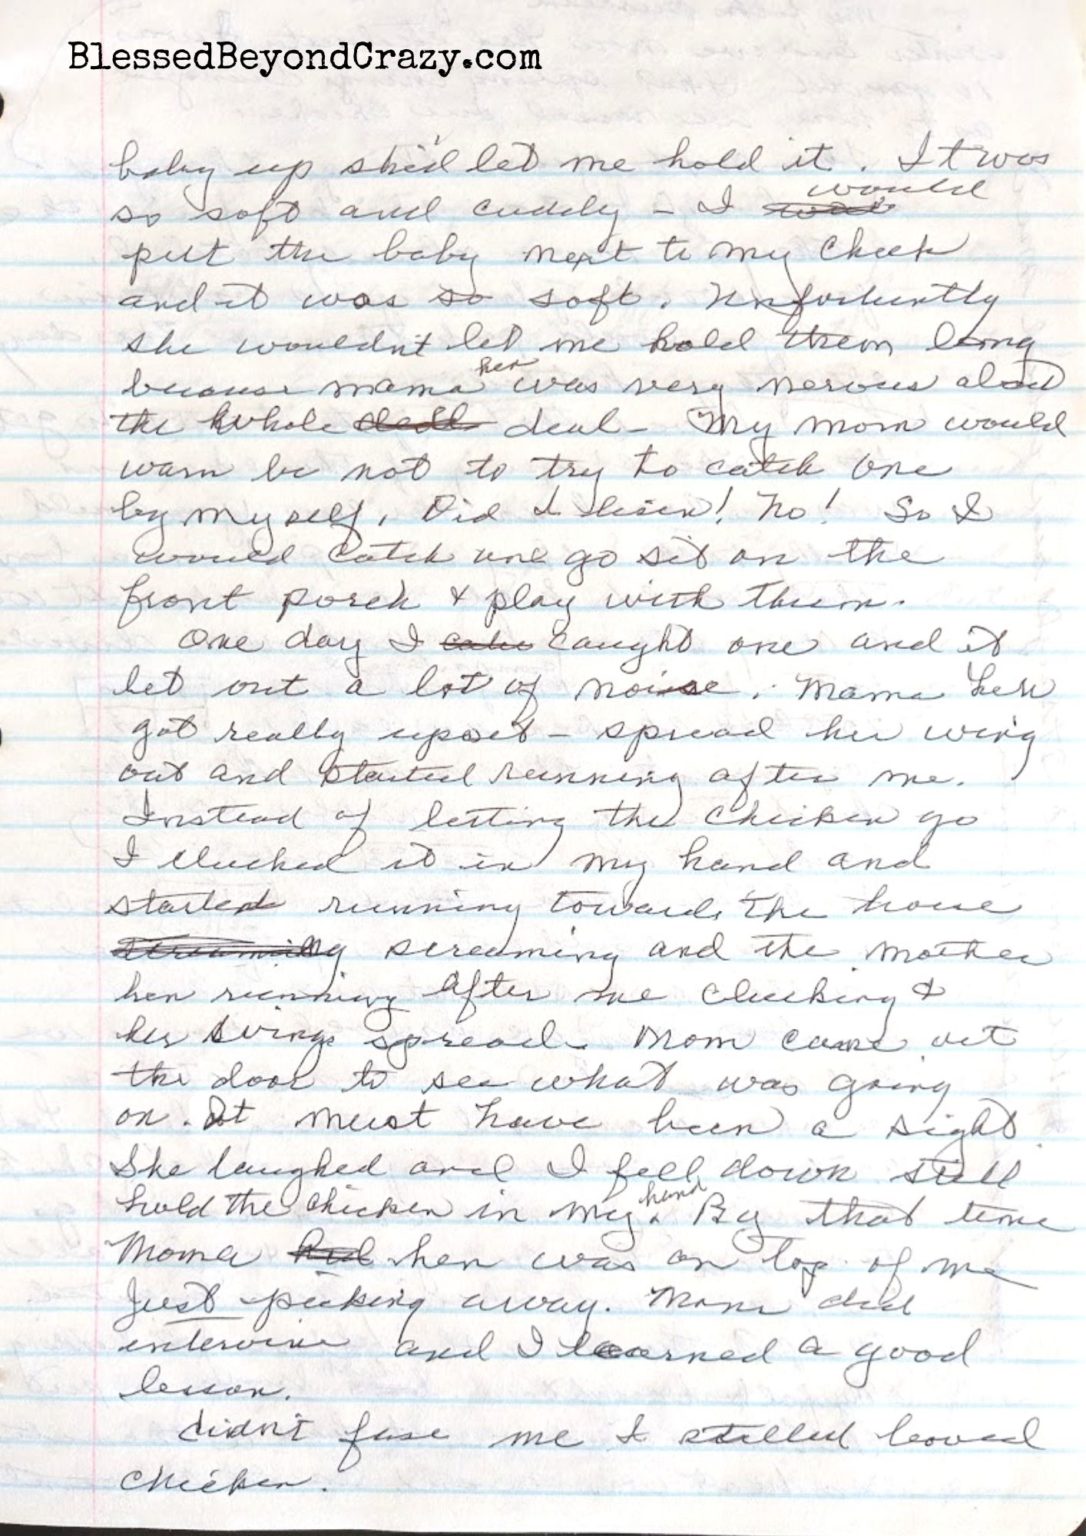 BlessedBeyondCrazy.com
baby up she'd let me hold it. It was
so soft and cuddly - I would
put the baby next to my cheek
and it was so soft. Unfortuntly
she wouldn't let me hold them long
because mama hen was very nervous about
the whole deal - My mom would
warn be not to try to catch one
by myself. Did I lisen! No! So I
would catch one go sit on the
front porch & play with them.
One day I caught one and it
let out a lot of noise. Mama hen
got really upset - spread her wing
out and started running after me.
Instead of letting the chicken go
I clucked it in my hand and
started running towards the house
screaming and the mother
hen running after me clucking &
her wings spread. Mom came out
the door to see what was going
on. It must have been a sight.
She laughed and I fell down still
hold the chicken in my hand. By that time
Moma hen was on top of me
Just picking away. Mom did
intervine and I learned a good
lesson.
didn't fase me I stilled loved
chicken.